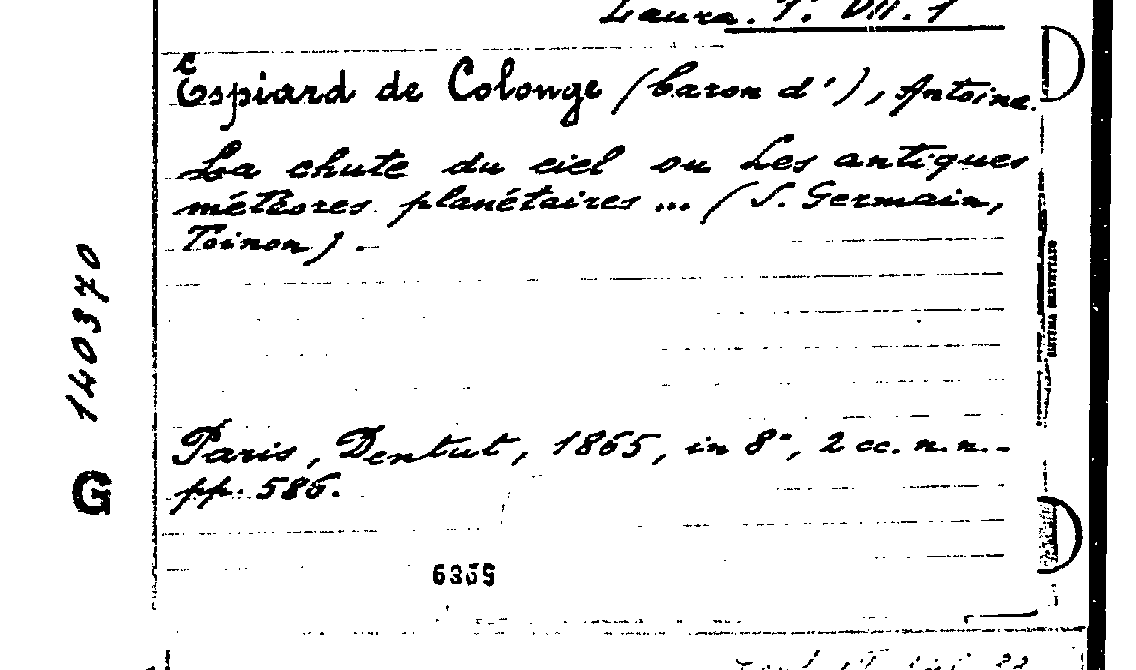 Laura. T. VII. 1
Espiard de Colonge (baron d'), Antoine.
La chute du ciel ou Les antiques
météores planétaires ... (S. Germain,
Toinon).
Paris, Dentut, 1865, in 8°, 2 cc. n.n.-
pp. 586.
G 140370